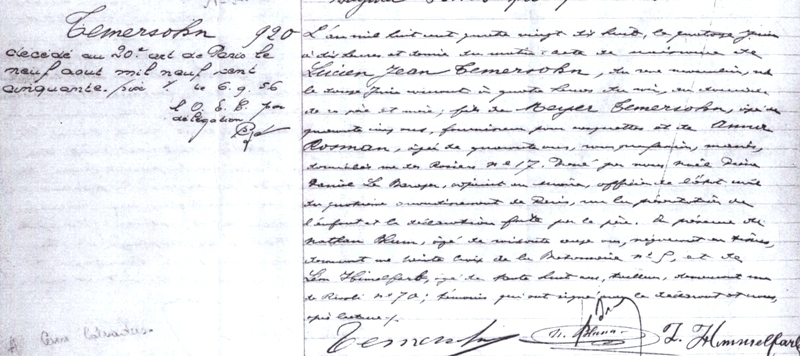 Temersohn 920
decédé au 20e art de Paris le
neuf aout mil neuf cent
cinquante. le 6.9.56
L'O.E.C. par
délégation
L'an mil huit cent quatre vingt dix huit, le quatorze Juin
à dix heures et demie du matin : acte de naissance de
Lucien Jean Temersohn, du sexe masculin, né
le douze Juin courant à quatre heures du soir, au domicile
de ses père et mère ; fils de Meyer Temersohn, âgé de
quarante cinq ans, fournisseur pour casquettes et de Annie
Rosman, âgée de quarante ans, sans profession, mariés,
domiciliés rue des Rosiers No 17. Dressé par nous
adjoint au maire, officier de l'état civil
du quatrième arrondissement de Paris, sur la présentation de
l'enfant et la déclaration faite par le père. En présence de
Nathan Blum, âgé de soixante onze ans,
demeurant rue Sainte Croix de la Bretonnerie No 5, et de
Léon Himelfarb, âgé de trente huit ans, tailleur, demeurant rue
de Rivoli No 70 ; témoins qui ont signé avec le déclarant et nous,
après lecture ./.
Temersohn N. Blum L. Himmelfarb